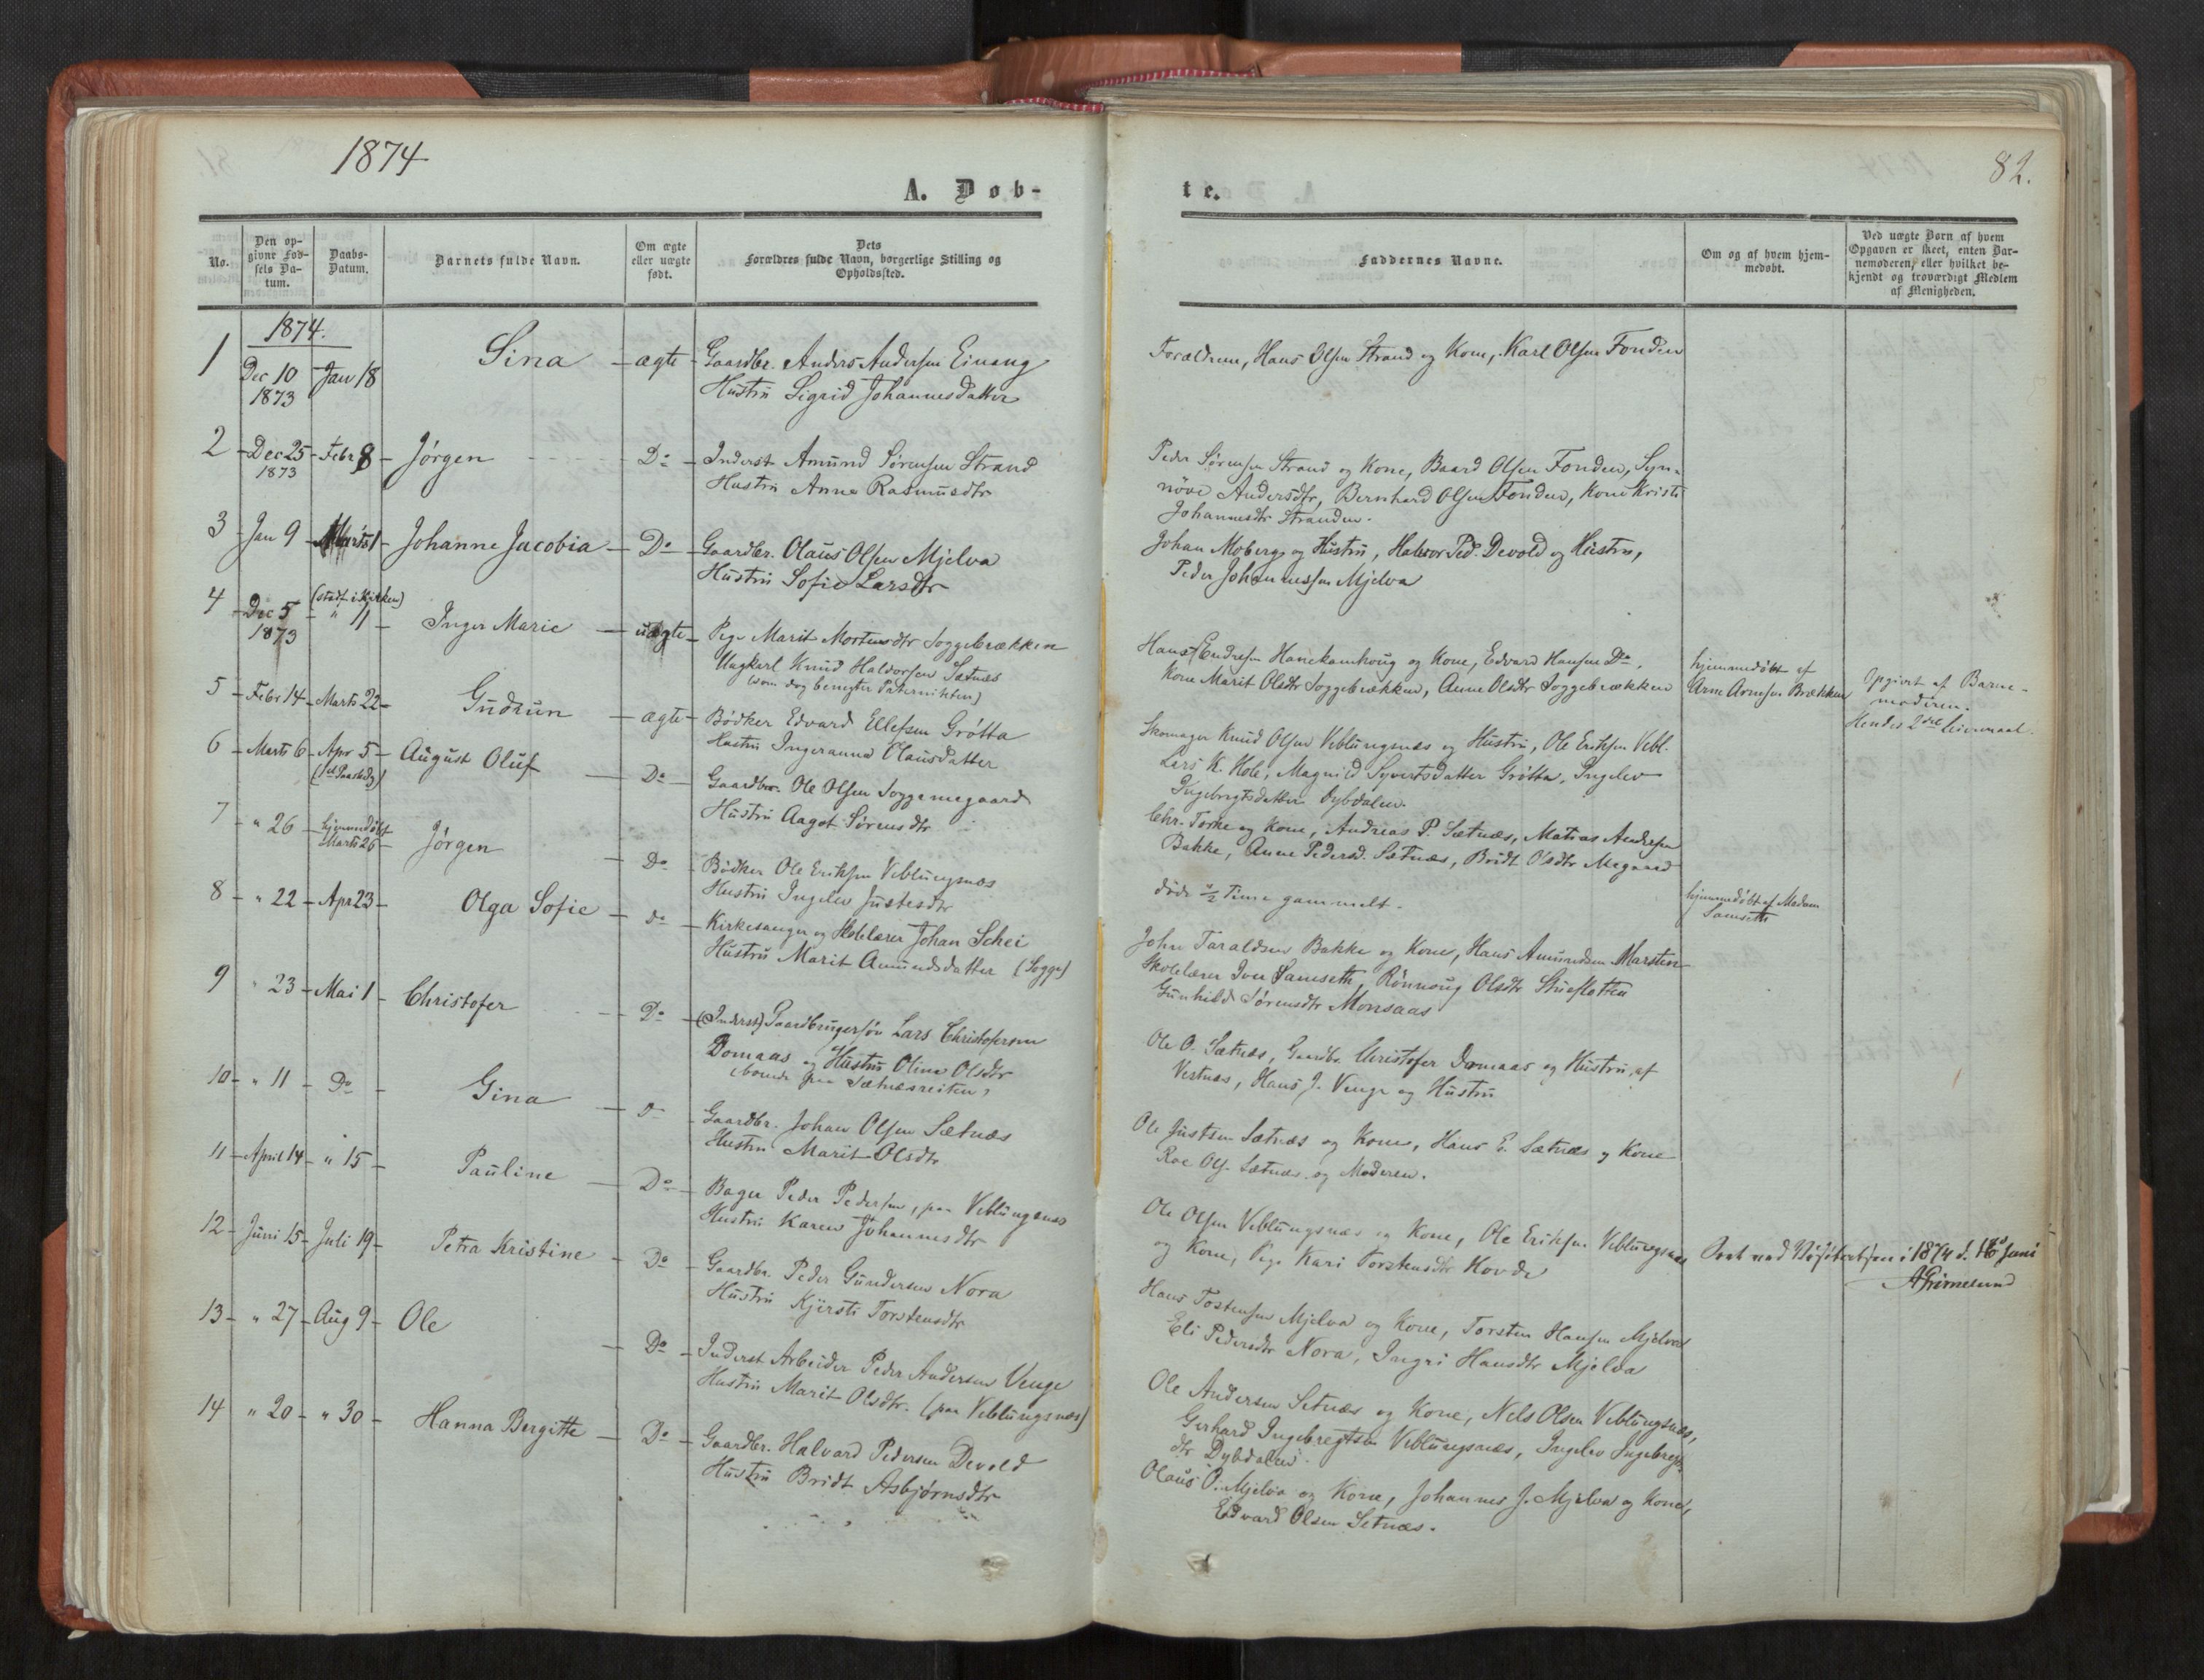 1874
A. Døb-
No.
Den op-
givne Fød-
sels Da-
tum.
Daabs-
Datum.
Barnets fulde Navn.
Om ægte
eller uægte
født.
Dets
Forældres fulde Navn, borgerlige Stilling og
Opholdssted.
1874.
1 Dec 10 1873 Jan 18 Sina ægte Gaardbr. Anders Andersen Einang
Hustrü Sigrid Johannesdatter
2 Dec 25 1873 Febr 8 Jørgen Do Inderst Amund Sørensen Strand
Hustrü Anne Rasmusdtr
3 Jan 9 Marts 1 Johanne Jacobia Do Gaardbr. Olaus Olsen Mjelva
Hustrü Sofie Larsdtr
4 Dec 5 1873 (stadf. i Kirken) " 11 Inger Marie uægte Pige Marit Mortensdtr Soggebrækken
Ungkarl Knud Haldorsen Sætnæs
(som dog benegter Paterniteten)
5 Febr 14 Marts 22 Gudrun ægte Bödker Edvard Ellefsen Grötta
Hustrü Ingeranna Olausdatter
6 Marts 6 Apr 5 August Oluf Do Gaardbr. Ole Olsen Soggemegaard
Hustrü Aagot Sørensdtr
7 " 26 hjemmedöbt Marts 26 Jørgen Do Bödker Ole Eriksen Veblungsnæs
Hustrü Ingelev Justesdtr
8 " 22 Apr 23 Olga Sofie do Kirkesanger og Skolelærer Johan Schei
Hustrü Marit Amundsdatter (Sogge)
9 " 23 Mai 1 Christofer Do (Inderst) Gaardbrugersøn Lars Christofersen
Domaas og Hustrü Oline Olsdtr
(boende paa Sætnæsreiten)
10 " 11 Do Gina Do Gaardbr. Johan Olsen Sætnæs
Hustrü Marit Olsdtr
11 April 14 " 15 Pauline Do Bager Peder Pedersen, paa Veblungsnæs
Hustrü Karen Johannesdtr
12 Juni 15 Juli 19 Petra Kristine Do Gaardbr. Peder Gundersen Nora
Hustrü Kjersti Torstensdtr
13 " 27 Aug 9 Ole Do Inderst Arbeider Peder Andersen Venge
Hustrü Marit Olsdtr. (paa Veblungsnæs)
14 " 20 " 30 Hanna Bergitte Do Gaardbr. Halvard Pedersen Devold
Hustrü Bridt Asbjørnsdtr
82.
te.
Faddernes Navne.
Om og af hvem hjem-
medøbt.
Ved uægte Børn af hvem
Opgaven er skeet, enten Bar-
nemoderen, eller hvilket be-
kjendt og troværdigt Medlem
af Menigheden.
Forældrene, Hans Olsen Strand og Kone, Karl Olsen Fonden
Peder Sørensen Strand og Kone, Baard Olsen Fonden, Syn-
növe Andersdtr, Bernhard Olsen Fonden, Kone Kristi
Johannesdtr Stranden.
Johan Moberg og Hustrü, Halvor Ped. Devold og Hustru,
Peder Johannessen Mjelva
Hans Endresen Hanekamhoug og Kone, Edvard Hansen Do.
Kone Marit Olsdtr Soggebrækken, Anne Olsdtr Soggebrækken
hjemmedöbt af
Arne Arnesen Brækken
Opgivet af Barne-
moderen.
Hendes 2det Leiermaal.
Skomager Knud Olsen Veblungsnæs og Hustrü, Ole Eriksen Vebl.
Lars K. Hole, Magnild Syvertsdatter Grötta, Ingelev
Ingebregtsdatter Dybdalen.
Chr. Torke og Kone, Andreas P. Sætnæs, Matias Andersen
Bakke, Anne Pedersd. Sætnæs, Bridt Olsdtr Megaard
döde 1/2 Time gammelt.
hjemmedöbt af Madam
Samseth
John Taraldsen Bakke og Kone, Hans Amundsen Marsten
Skolelærer Iver Samseth, Rönnoug Olsdtr Stueflotten
Gunhild Sørensdtr Monsaas
Ole O. Sætnæs, Gaardbr. Christofer Domaas og Hustrü af
Vestnæs, Hans J. Venge og Hustrü
Ole Justsen Sætnæs og Kone, Hans E. Sætnæs og Kone
Roe Ols. Sætnæs og Moderen.
Ole Olsen Veblungsnæs og Kone, Ole Eriksen Veblungsnæs
og Kone, Pige Kari Torstensdtr Hovde
Seet ved Visitatsen i 1874 d. 18 Juni
A Grimelund
Hans Tostensen Mjelva og Kone, Torsten Hansen Mjelva
Eli Pedersdtr Nora, Ingri Hansdtr Mjelva
Ole Andersen Setnæs og Kone, Nels Olsen Veblungsnæs,
Gerhard Ingebregtsen Veblungsnæs, Ingelev Ingebregts-
dtr Dybdalen.
Olaus O. Mjelva og Kone, Johannes J. Mjelva og Kone,
Edvard Olsen Setnæs.